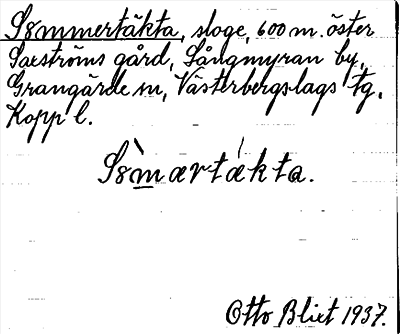 Sommertäkta, sloge, 600 m. öster
Saxströms gård, Sångmyran by,
Grangärde sn, Västerbergslags tg.
Kopp l.
Sòmærtǽkta.
Otto Blixt 1937.